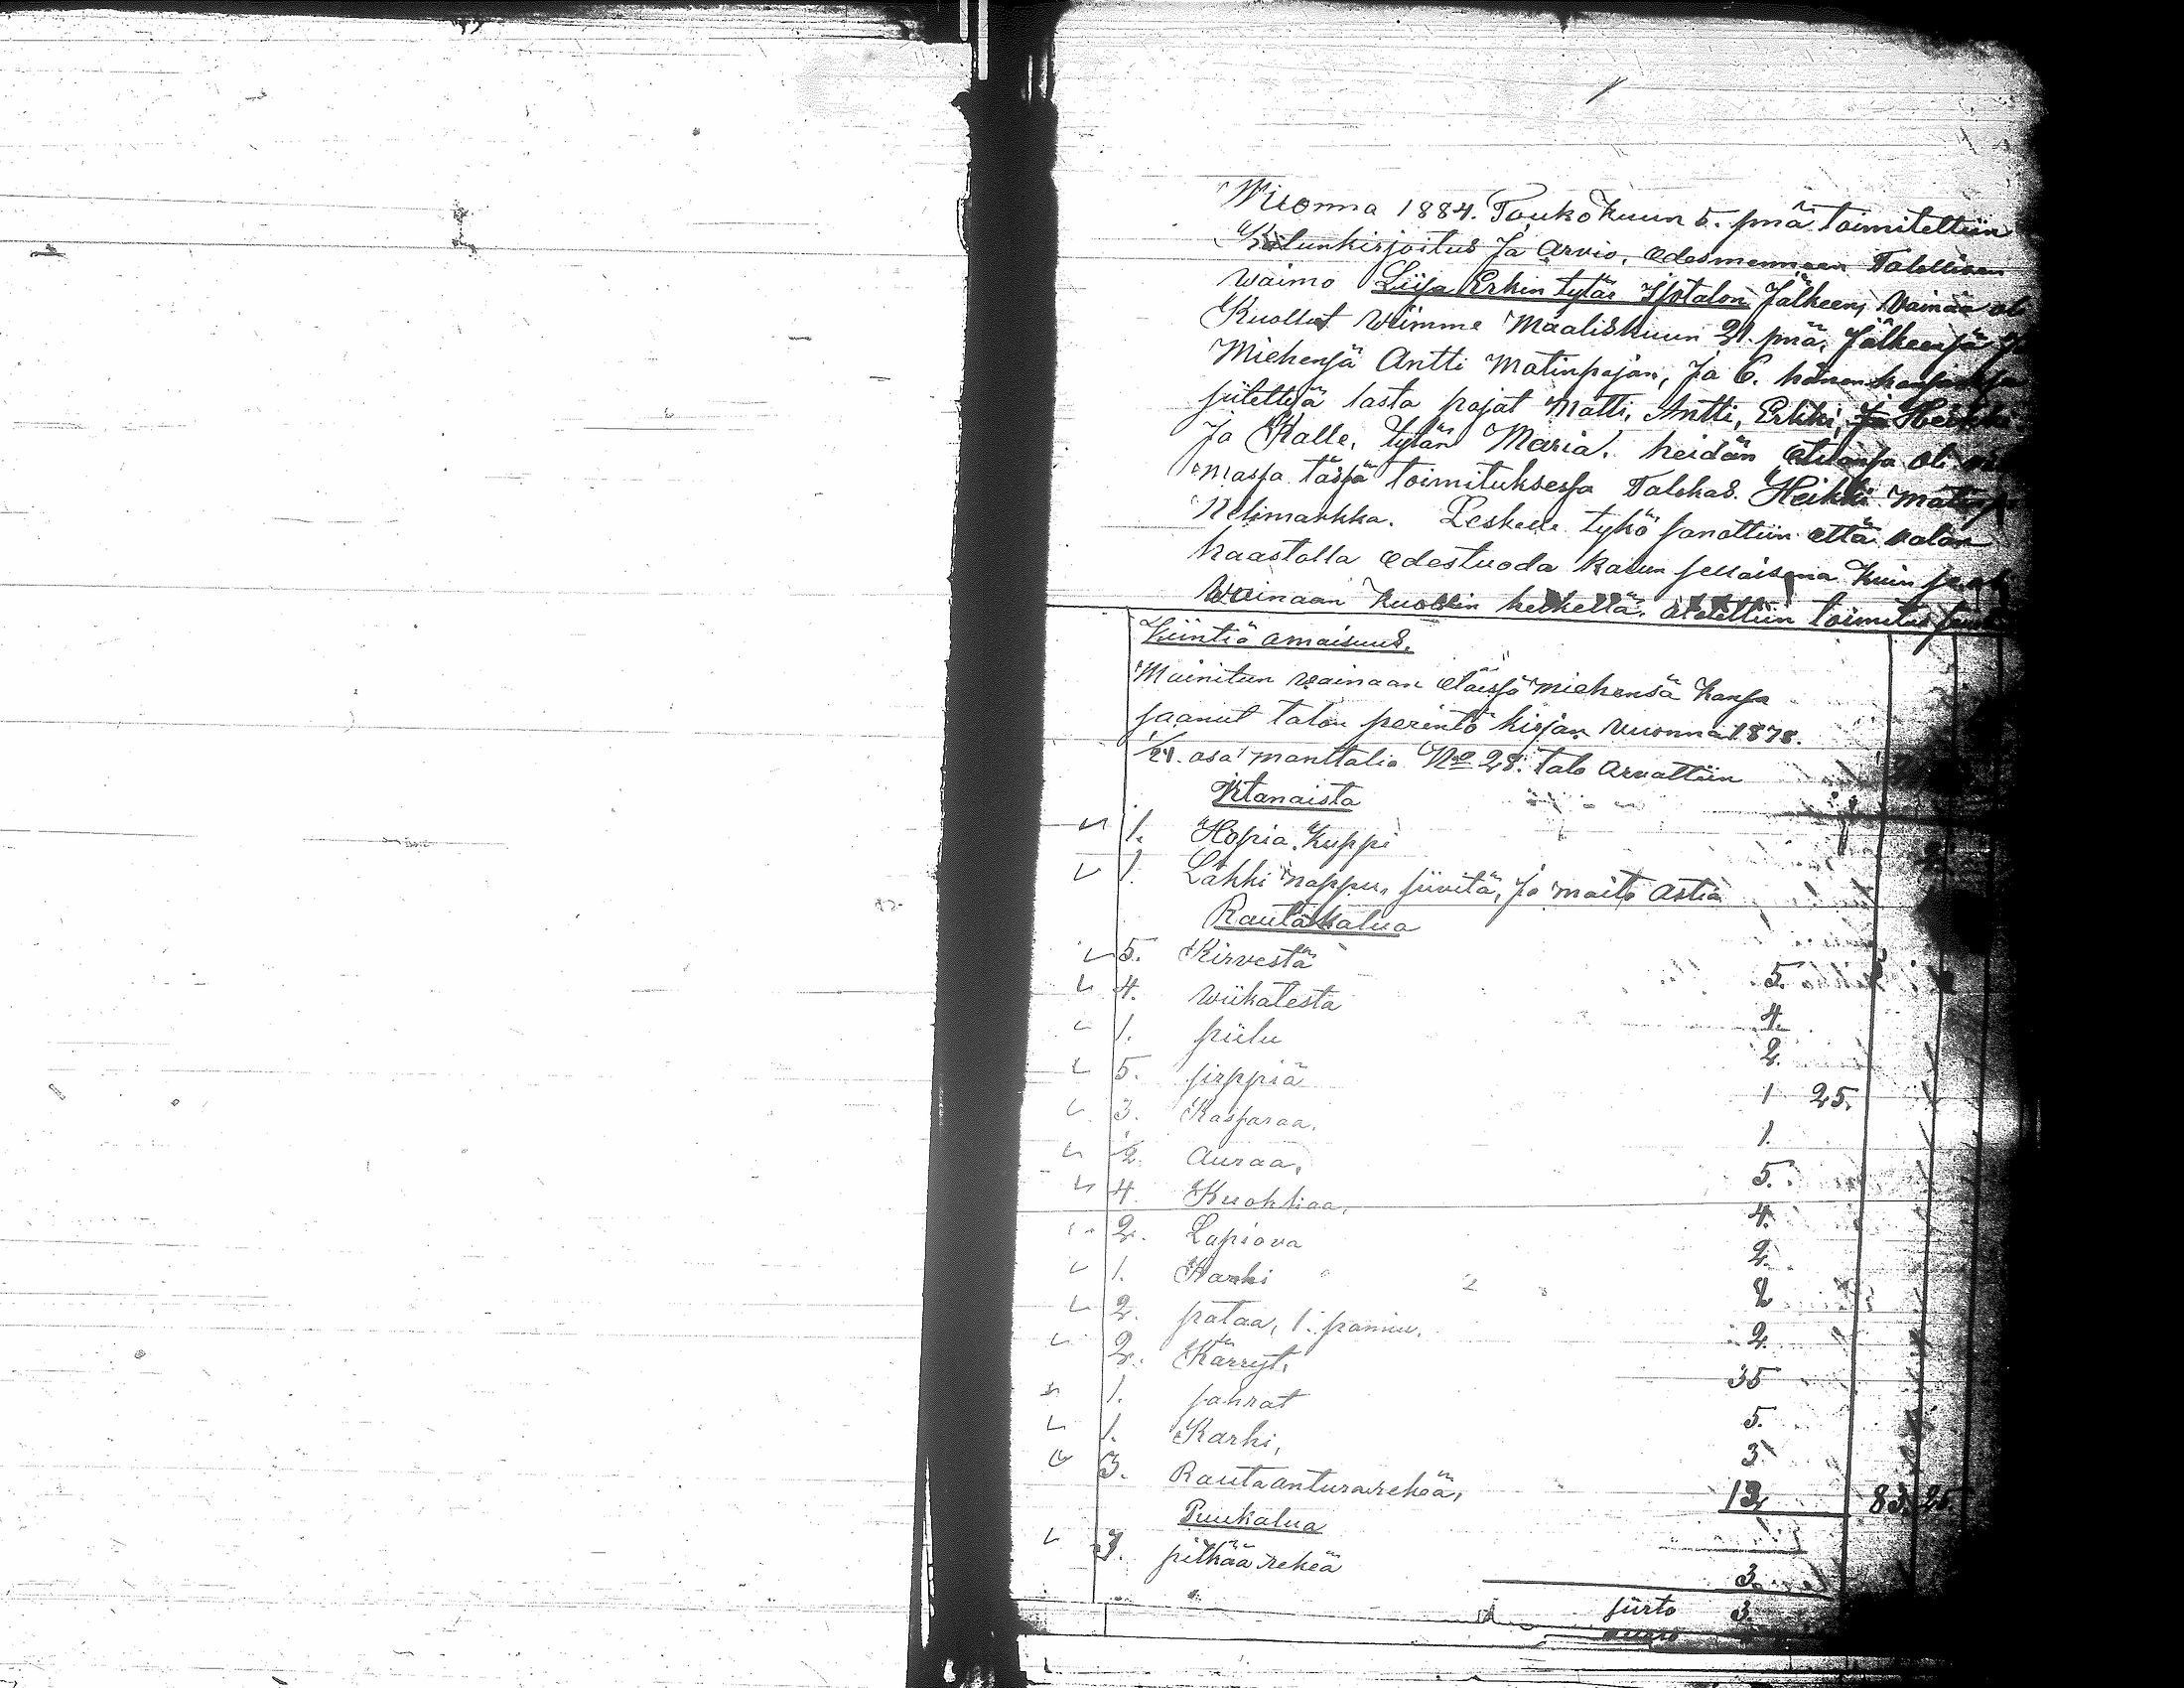 Wuonna 1884. Toukokuun 5. pnä toimitettiin
Kalunkirjoitus Ja Arvio, edesmenneen Talollisen
waimo Liisa Erkin tytär Isotalon Jälkeen, Vainaa oli
Kuollut wiimme Maaliskuun 21. pnä, Jälkeensä
Miehensä Antti Matinpojan, Ja 6. hänen kansansa
siitettyä lasta pojat Matti, Antti, Erkki, Ja Heikki
Ja Kalle, tytär Maria. heidän etuansa oli
massa tässä toimituksessa Talokas. Heikki Matinp
Nelimarkka. Leskelle tykö sanottiin että valan
haastolla edestuoda kalun sellaisena kuin se oli
Wainaan kuollin hetkellä. aletettiin toimitus
Kiintiä omaisuus.
Mainitun vainaan eläissä miehensä kansa
saanut talon perintö kirjan vuonna 1878.
1/24. osa manttalia No 28. talo Arvattiin
Kitanaista
1. Hopia Kuppi
1. Läkki nappu, siivitä, Ja maito Astia
Rautakalua
5. Kirvestä 5.
4. wiikatesta 4.
1. piilu 2.
5. sirppiä 1 25.
3. Kassaraa. 1.
2. Auraa, 5.
4. Kuokkaa, 4.
2. Lapiova 2.
1. Hanki 2
2. pataa, 1. pannu. 2.
2. Kärryt, 35
1. sahrat 5.
1. Karhi, 3
3. Rautaanturarekeä, 12 83 25
Puukalua
3. pitkää rekeä 3.
siirto 3.